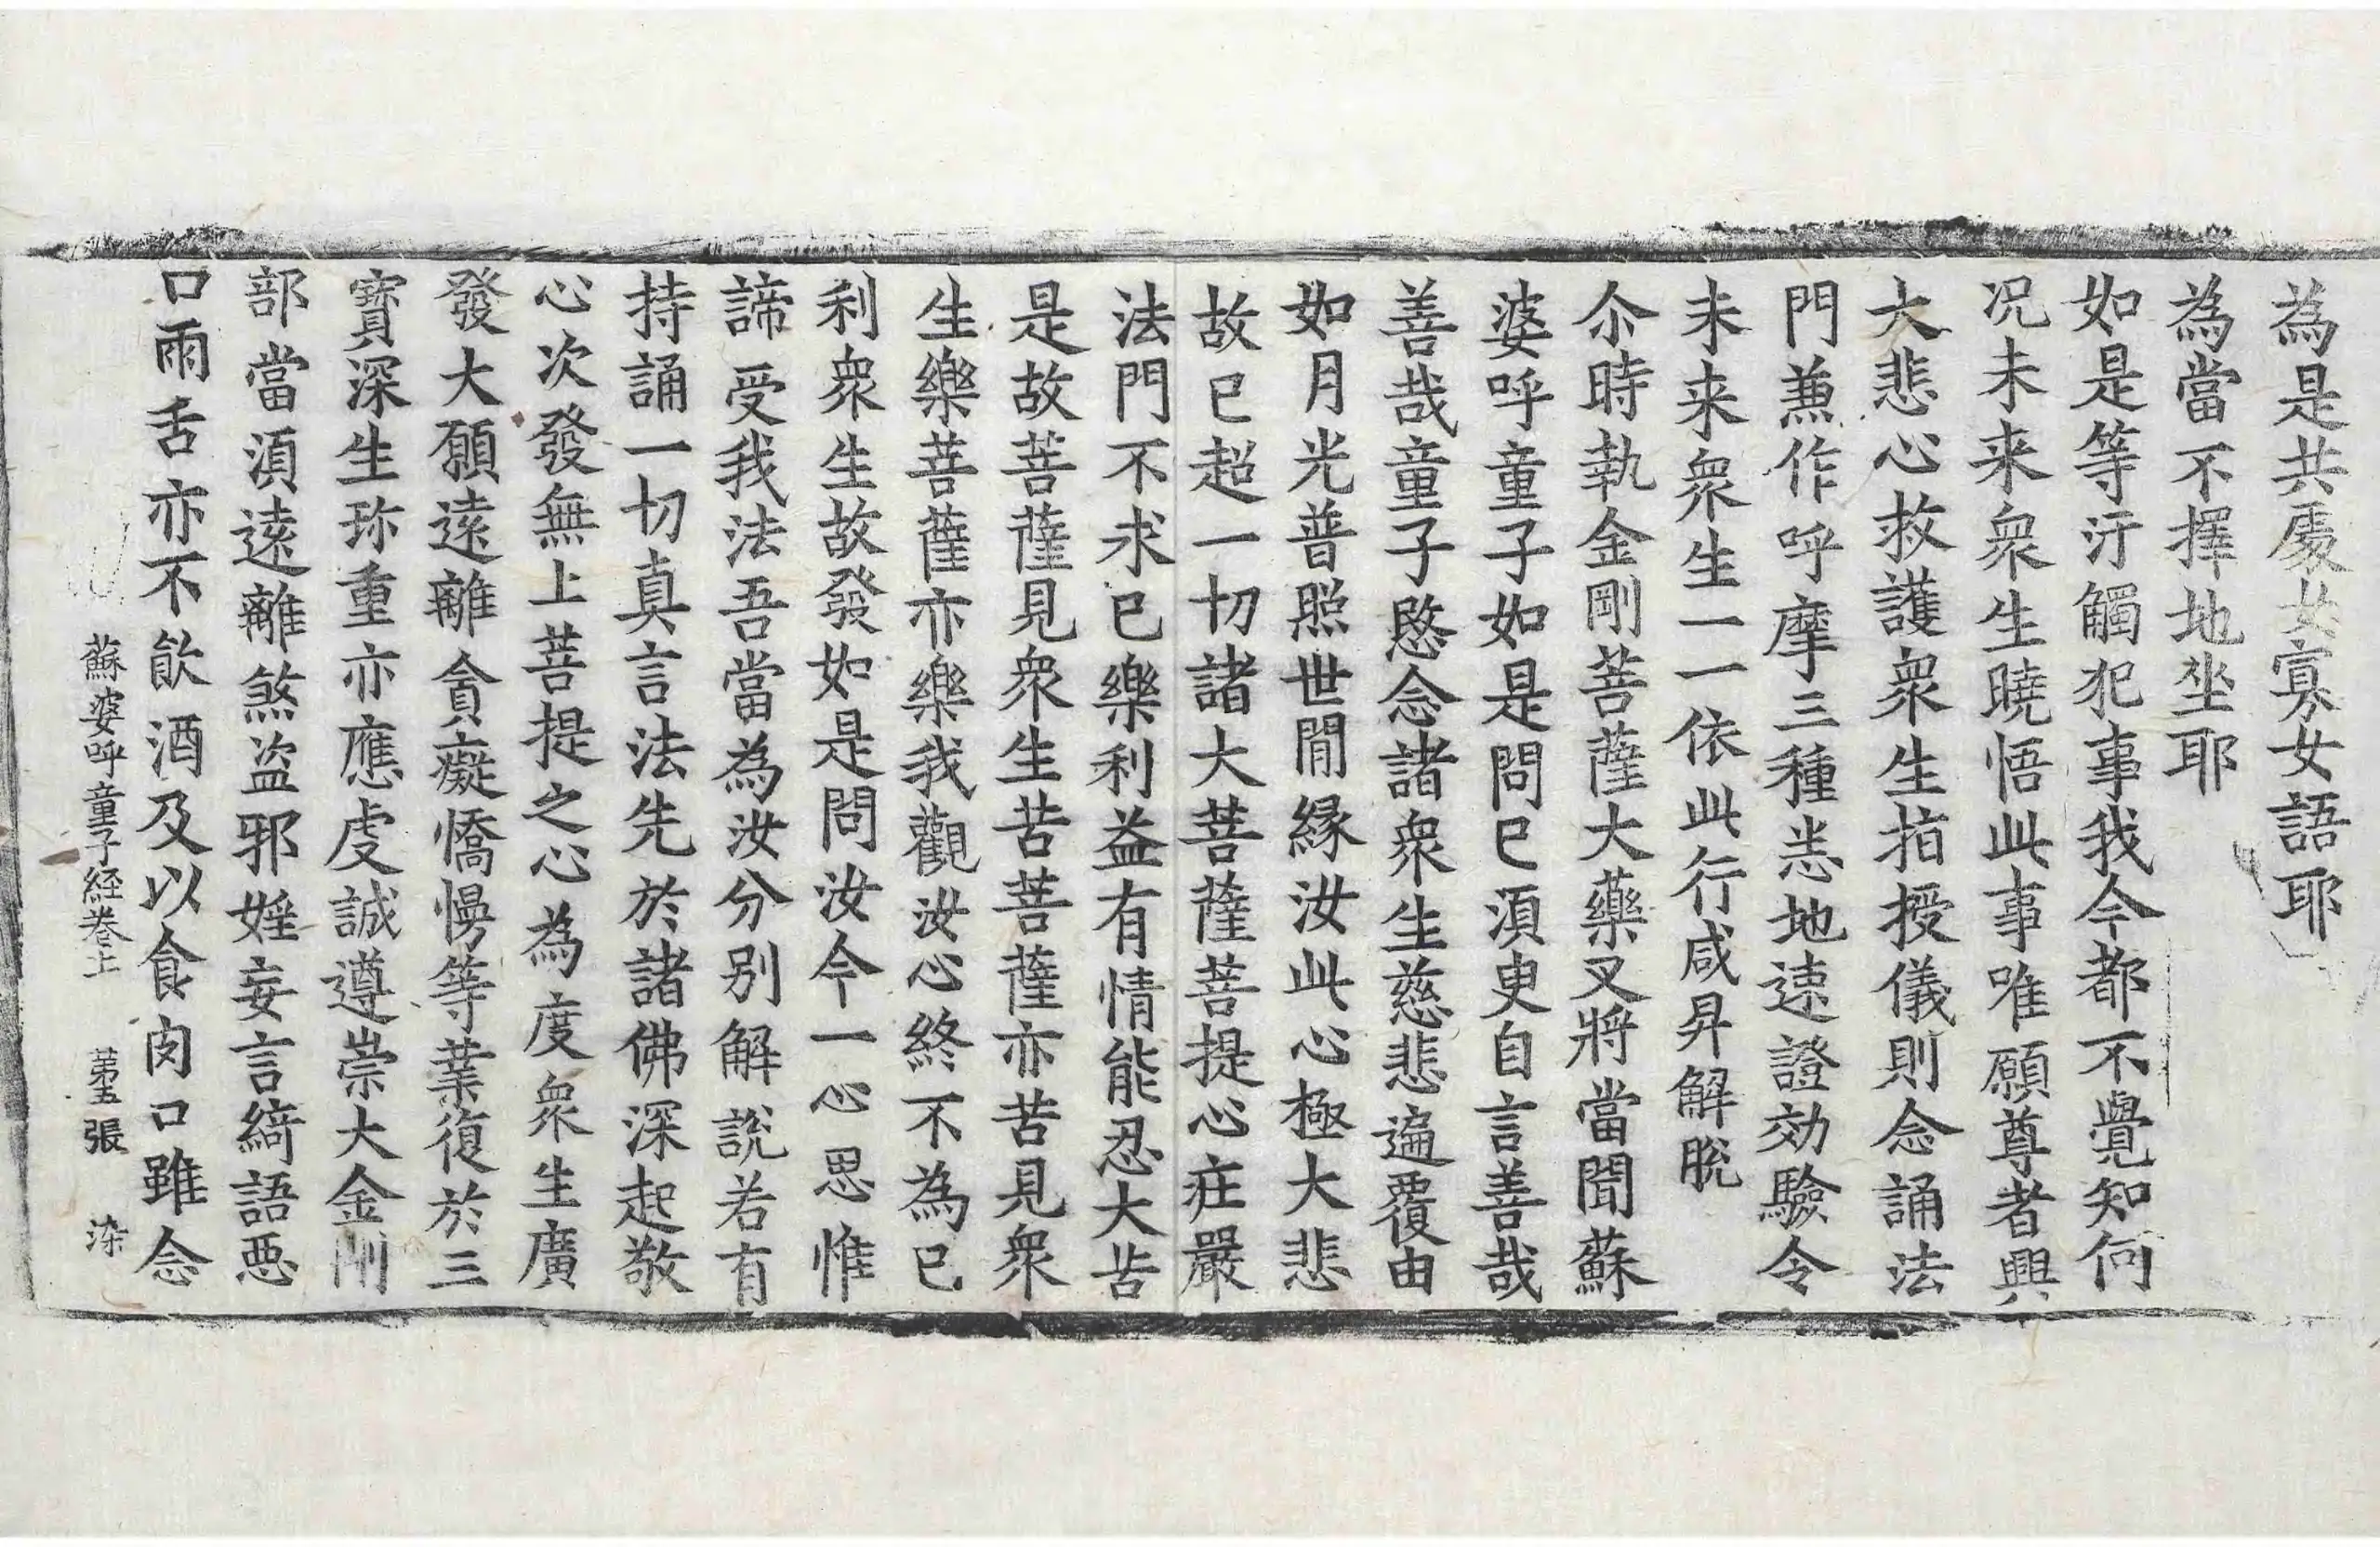 為是共處女寡女語耶
為當不擇地坐耶
如是等汙觸犯事我今都不覺知何
況未来衆生曉悟此事唯願尊者興
大悲心救護衆生指授儀則念誦法
門兼作呼摩三種悉地速證効驗令
未来衆生一一依此行咸昇解脫
尒時執金剛菩薩大藥叉將當聞蘇
婆呼童子如是問已湏臾自言善哉
善哉童子愍念諸衆生慈悲遍覆由
如月光普照世閒縁汝此心極大悲
故已超一切諸大菩薩菩提心庄嚴
法門不求已樂利益有情能忍大苦
是故菩薩見衆生苦菩薩亦苦見衆
生樂菩薩亦樂我觀汝心終不為已
利衆生故發如是問汝今一心思惟
諦受我法吾當為汝分別解說若有
持誦一切真言法先於諸佛深起敬
心次發無上菩提之心為度衆生廣
發大願遠離貪癡憍慢等業復於三
寶深生珎重亦應虔誠遵崇大金剛
部當湏遠離煞盜邪婬妄言綺語惡
口兩舌亦不飮酒及以食肉口雖念
蘇婆呼童子経卷上 第五張 染